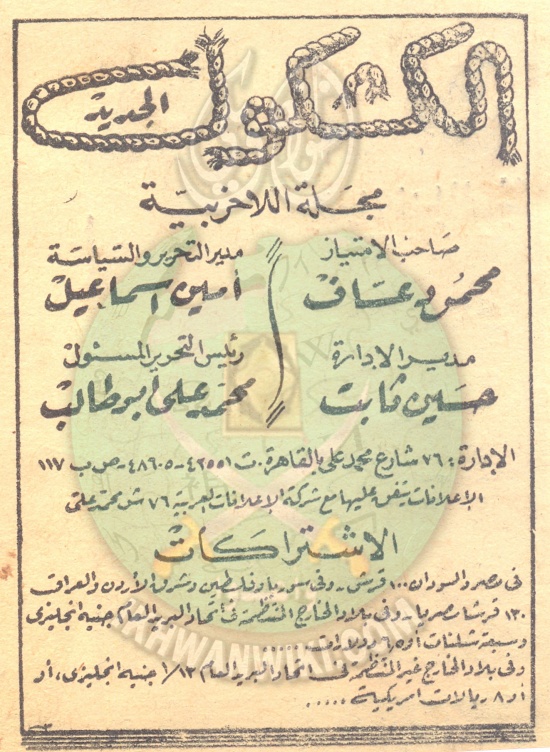 الكشكول
الجديد
مجلة اللاحزبية
صاحب الامتياز
محمود عساف
مدير التحرير والسياسة
أمين اسماعيل
مدير الإدارة
حسين ثابت
رئيس التحرير المسئول
محمد على أبو طالب
الإدارة: ٧٦ شارع محمد على بالقاهرة. ت ٤٢٥٥١ - ٤٨٦٠٥ - ص ب ١١٧
الإعلانات يتفق عليها مع شركة الإعلانات العربية ٧٦ ش محمد على
الاشتراكات
فى مصر والسودان ١٠٠ قرش - وفى سوريا وفلسطين وشرق الأردن والعراق
١٣٠ قرشا مصريا - وفى بلاد الخارج المنتظمة فى اتحاد البريد العام جنيه انجليزى
وسبعة شلنات أو ٦٫٥ دولارات ....
وفى بلاد الخارج غير المنتظمة فى اتحاد البريد العام ١/١٣ جنيه انجليزى، أو
أو ٨ ريالات امريكية ....
IKHWANWIKI.COM